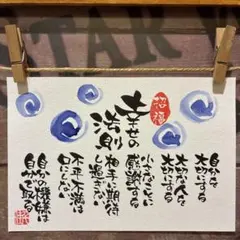 自分を
大切にする
大切な人を
大切にする
招福
幸せの
法則
小さなことに
感謝する
相手に期待
し過ぎない
不平不満は
口にしない
自分の機嫌は
自分で取る